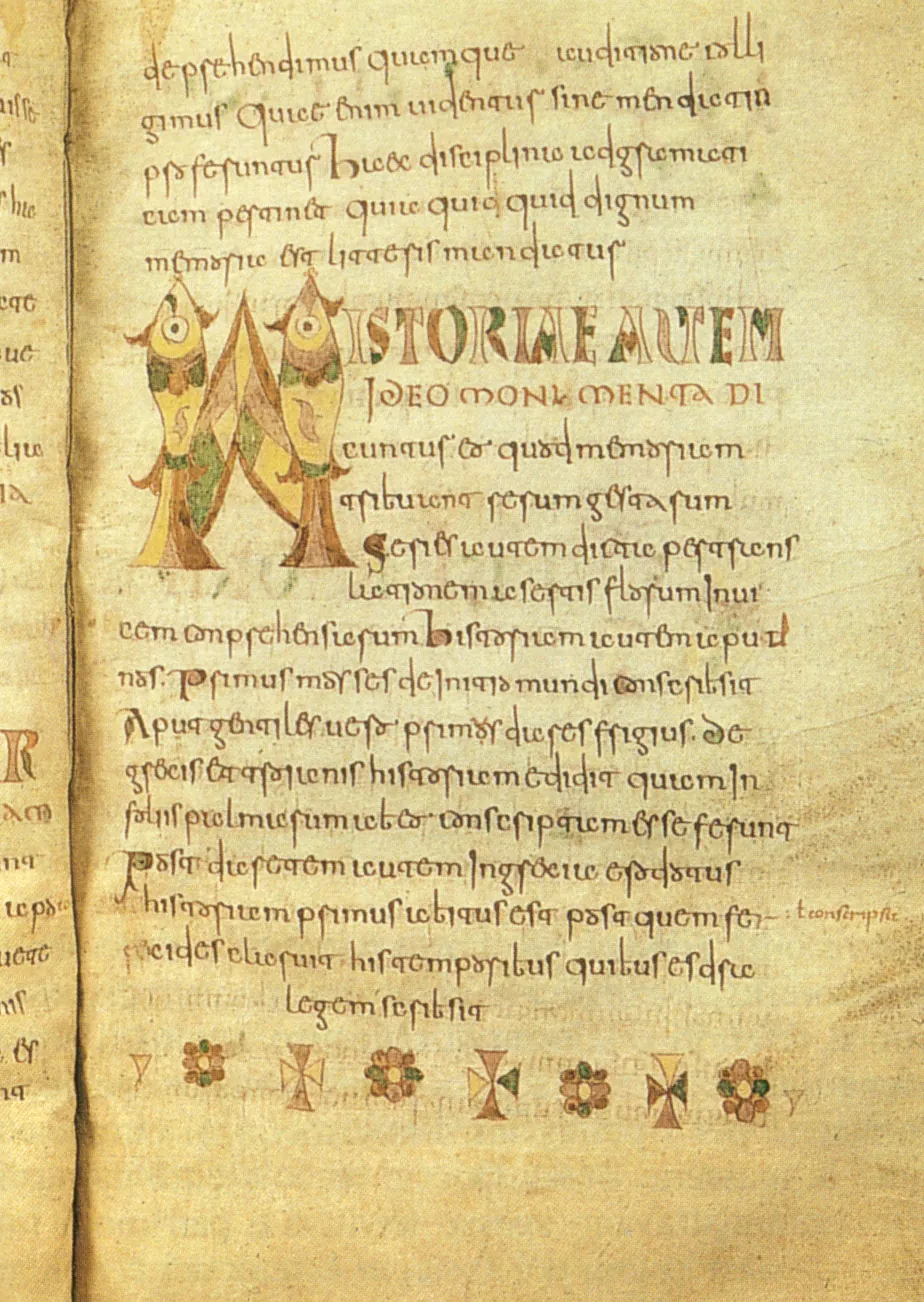 deprehendimus quamque auditione colli
gimus Quae enim uidentur sine mendatio
proferuntur Haec disciplina ad gramati
cam pertinet quia quid quid dignum
memoria est litteris mandatur
HISTORIAE AUTEM
IDEO MONUMENTA DI
cuntur eo quod memoriam
tribuant rerum gestarum
Series autem dicta per trans
lationem a sertis florum Inui
cem conprehensarum historiam autem aput
nos. Primus moyses de Initio mundi conscribsit
Aput gentiles uero primos dares frigius. de
grecis et troianis historiam edidit quam In
foliis palmarum ab eo conscriptam esse ferunt
Post daretem autem In grecia erodotus
historiam primus abitus est post quem fe
: ł conscripsit
recides claruit his temporibus quibus esdra
legem scribsit